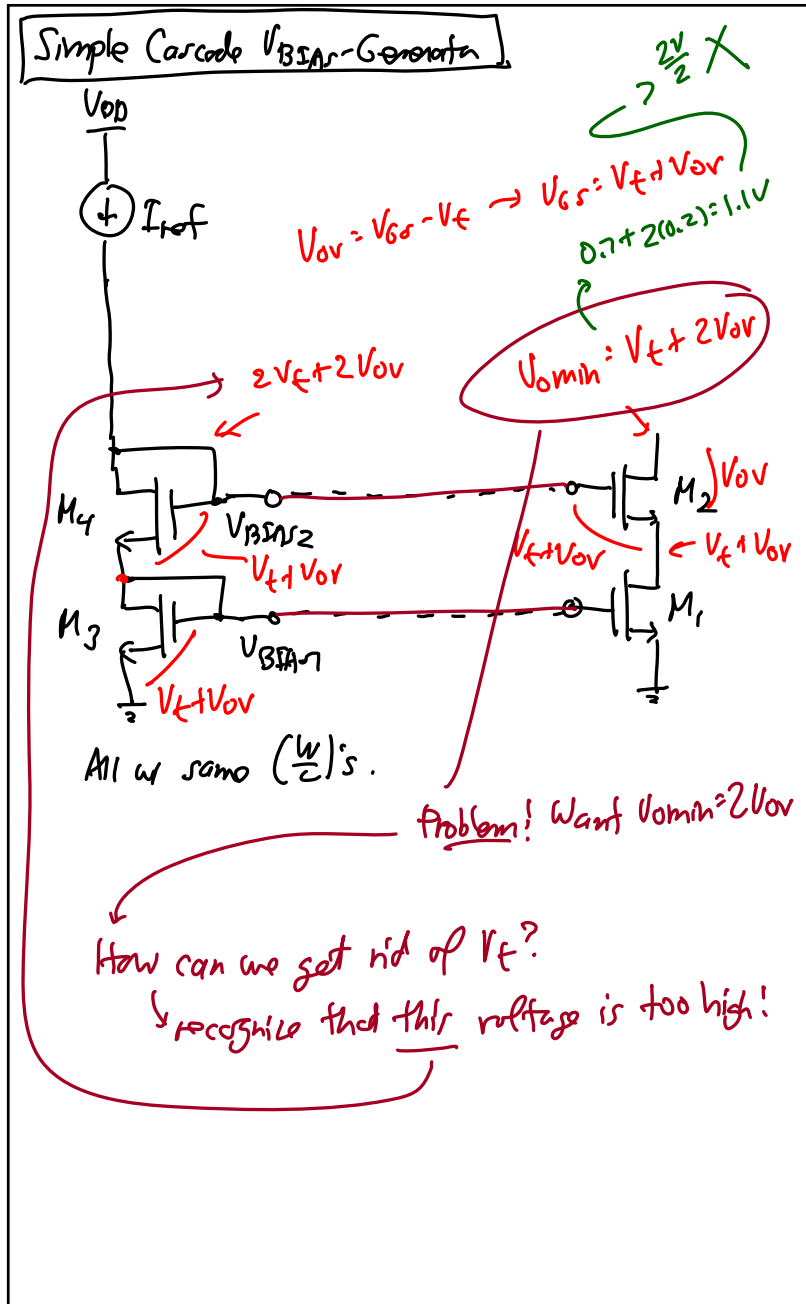 Simple Cascode VBIAS-Generator
> 2V/2 X
VDD
Iref
Vov = VGS - Vt → VGS = Vt + Vov
0.7 + 2(0.2) = 1.1V
Vomin = Vt + 2Vov
2Vt + 2Vov
M4
VBIAS2
Vt + Vov
M2
Vov
Vt + Vov
Vt + Vov
M3
VBIAS1
M1
Vt + Vov
All w/ same (W/L)'s.
Problem! Want Vomin = 2Vov
How can we get rid of Vt?
recognize that this voltage is too high!